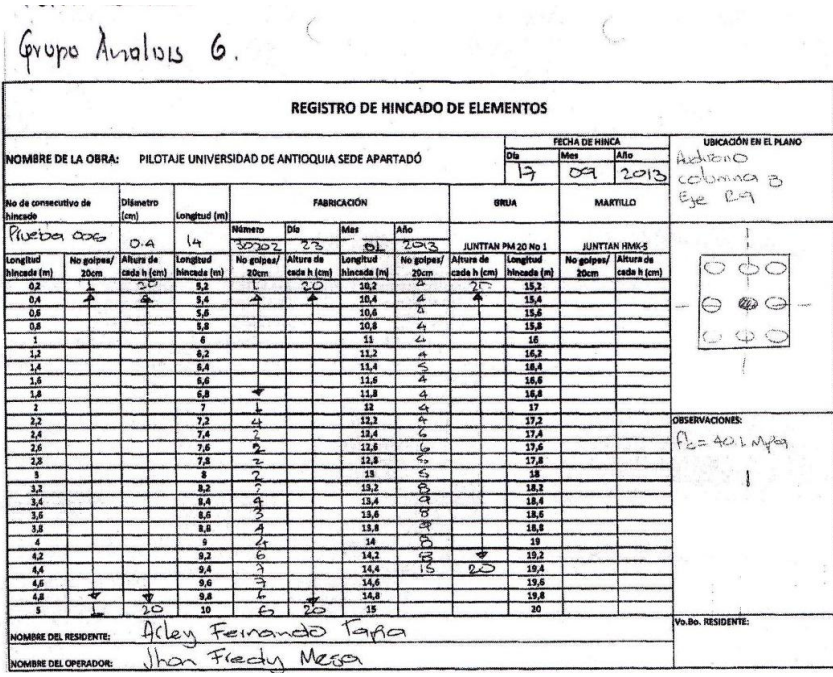 Grupo Analisis 6.
REGISTRO DE HINCADO DE ELEMENTOS
NOMBRE DE LA OBRA: PILOTAJE UNIVERSIDAD DE ANTIOQUIA SEDE APARTADÓ
FECHA DE HINCA
Día Mes Año
17 09 2013
UBICACIÓN EN EL PLANO
columna B
Eje
No de consecutivo de hincado Diámetro (cm) Longitud (m) FABRICACIÓN GRUA MARTILLO
Número Día Mes Año
Prueba 006 0.4 14 30202 23 2013 JUNTTAN PM 20 No 1 JUNTTAN HMK-5
Longitud hincada (m) No golpes/ 20cm Altura de cada h (cm) Longitud hincada (m) No golpes/ 20cm Altura de cada h (cm) Longitud hincada (m) No golpes/ 20cm Altura de cada h (cm) Longitud hincada (m) No golpes/ 20cm Altura de cada h (cm)
0,2 1 20 5,2 1 20 10,2 4 20 15,2
0,4 5,4 10,4 4 15,4
0,6 5,6 10,6 4 15,6
0,8 5,8 10,8 4 15,8
1 6 11 4 16
1,2 6,2 11,2 4 16,2
1,4 6,4 11,4 5 16,4
1,6 6,6 11,6 4 16,6
1,8 6,8 11,8 4 16,8
2 7 1 12 4 17
2,2 7,2 4 12,2 4 17,2
2,4 7,4 2 12,4 6 17,4
2,6 7,6 2 12,6 6 17,6
2,8 7,8 2 12,8 5 17,8
3 8 2 13 5 18
3,2 8,2 2 13,2 8 18,2
3,4 8,4 4 13,4 9 18,4
3,6 8,6 3 13,6 8 18,6
3,8 8,8 4 13,8 9 18,8
4 9 4 14 8 19
4,2 9,2 6 14,2 8 19,2
4,4 9,4 7 14,4 15 20 19,4
4,6 9,6 7 14,6 19,6
4,8 9,8 6 14,8 19,8
5 1 20 10 6 20 15 20
OBSERVACIONES:
f'c = 40.1 Mpa
NOMBRE DEL RESIDENTE: Arley Fernando Tapia
NOMBRE DEL OPERADOR: Jhon Fredy Mesa
Vo.Bo. RESIDENTE: